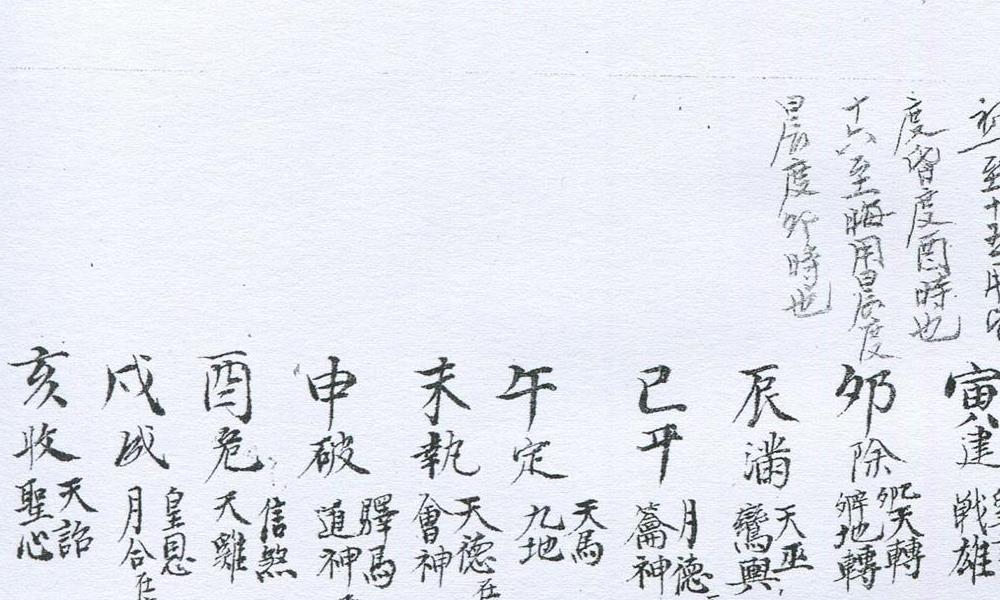 至十五用
度昏度酉時也
十六至晦用晨度
晨度卯時也
寅建
戦雄
卯除
天轉
地轉
辰満
天巫
鸞輿
巳平
月德
神
午定
天馬
九地
未執
天德在
會神
申破
驛馬
神
酉危
信煞
天雞
戌成
皇恩
月合在
亥收
天詔
聖心